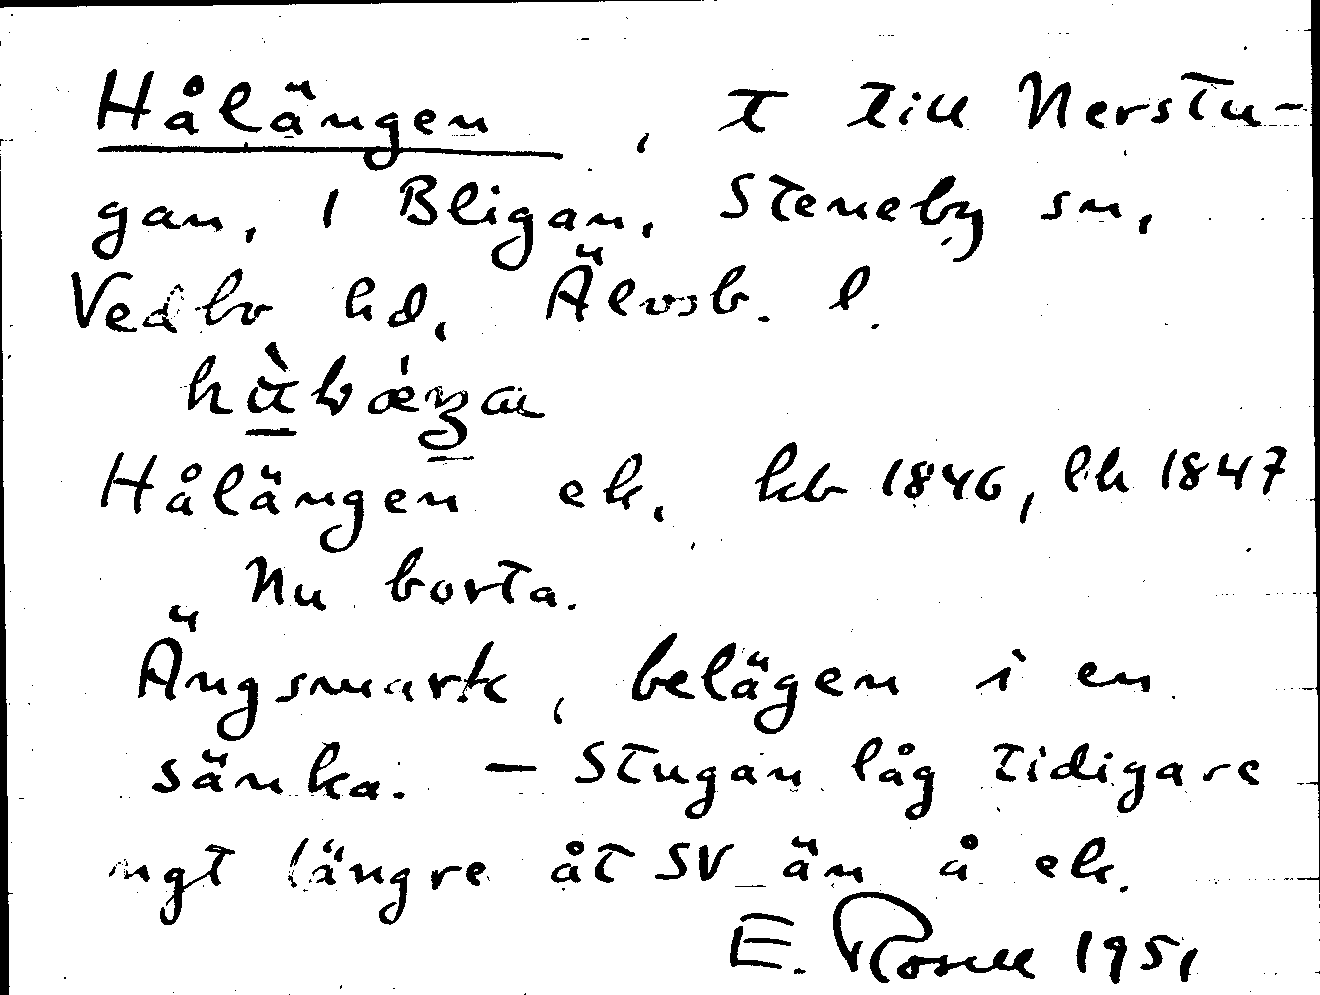 Hålängen, t till Nerstu-
gan, 1 Bligan, Steneby sn,
Vedbo hd, Älvsb. l.
Hålängen ek. kb 1846, lh 1847
Nu borta.
Ängsmark, belägen i en
sänka. — Stugan låg tidigare
ngt längre åt SV än å ek.
E. Rosell 1951